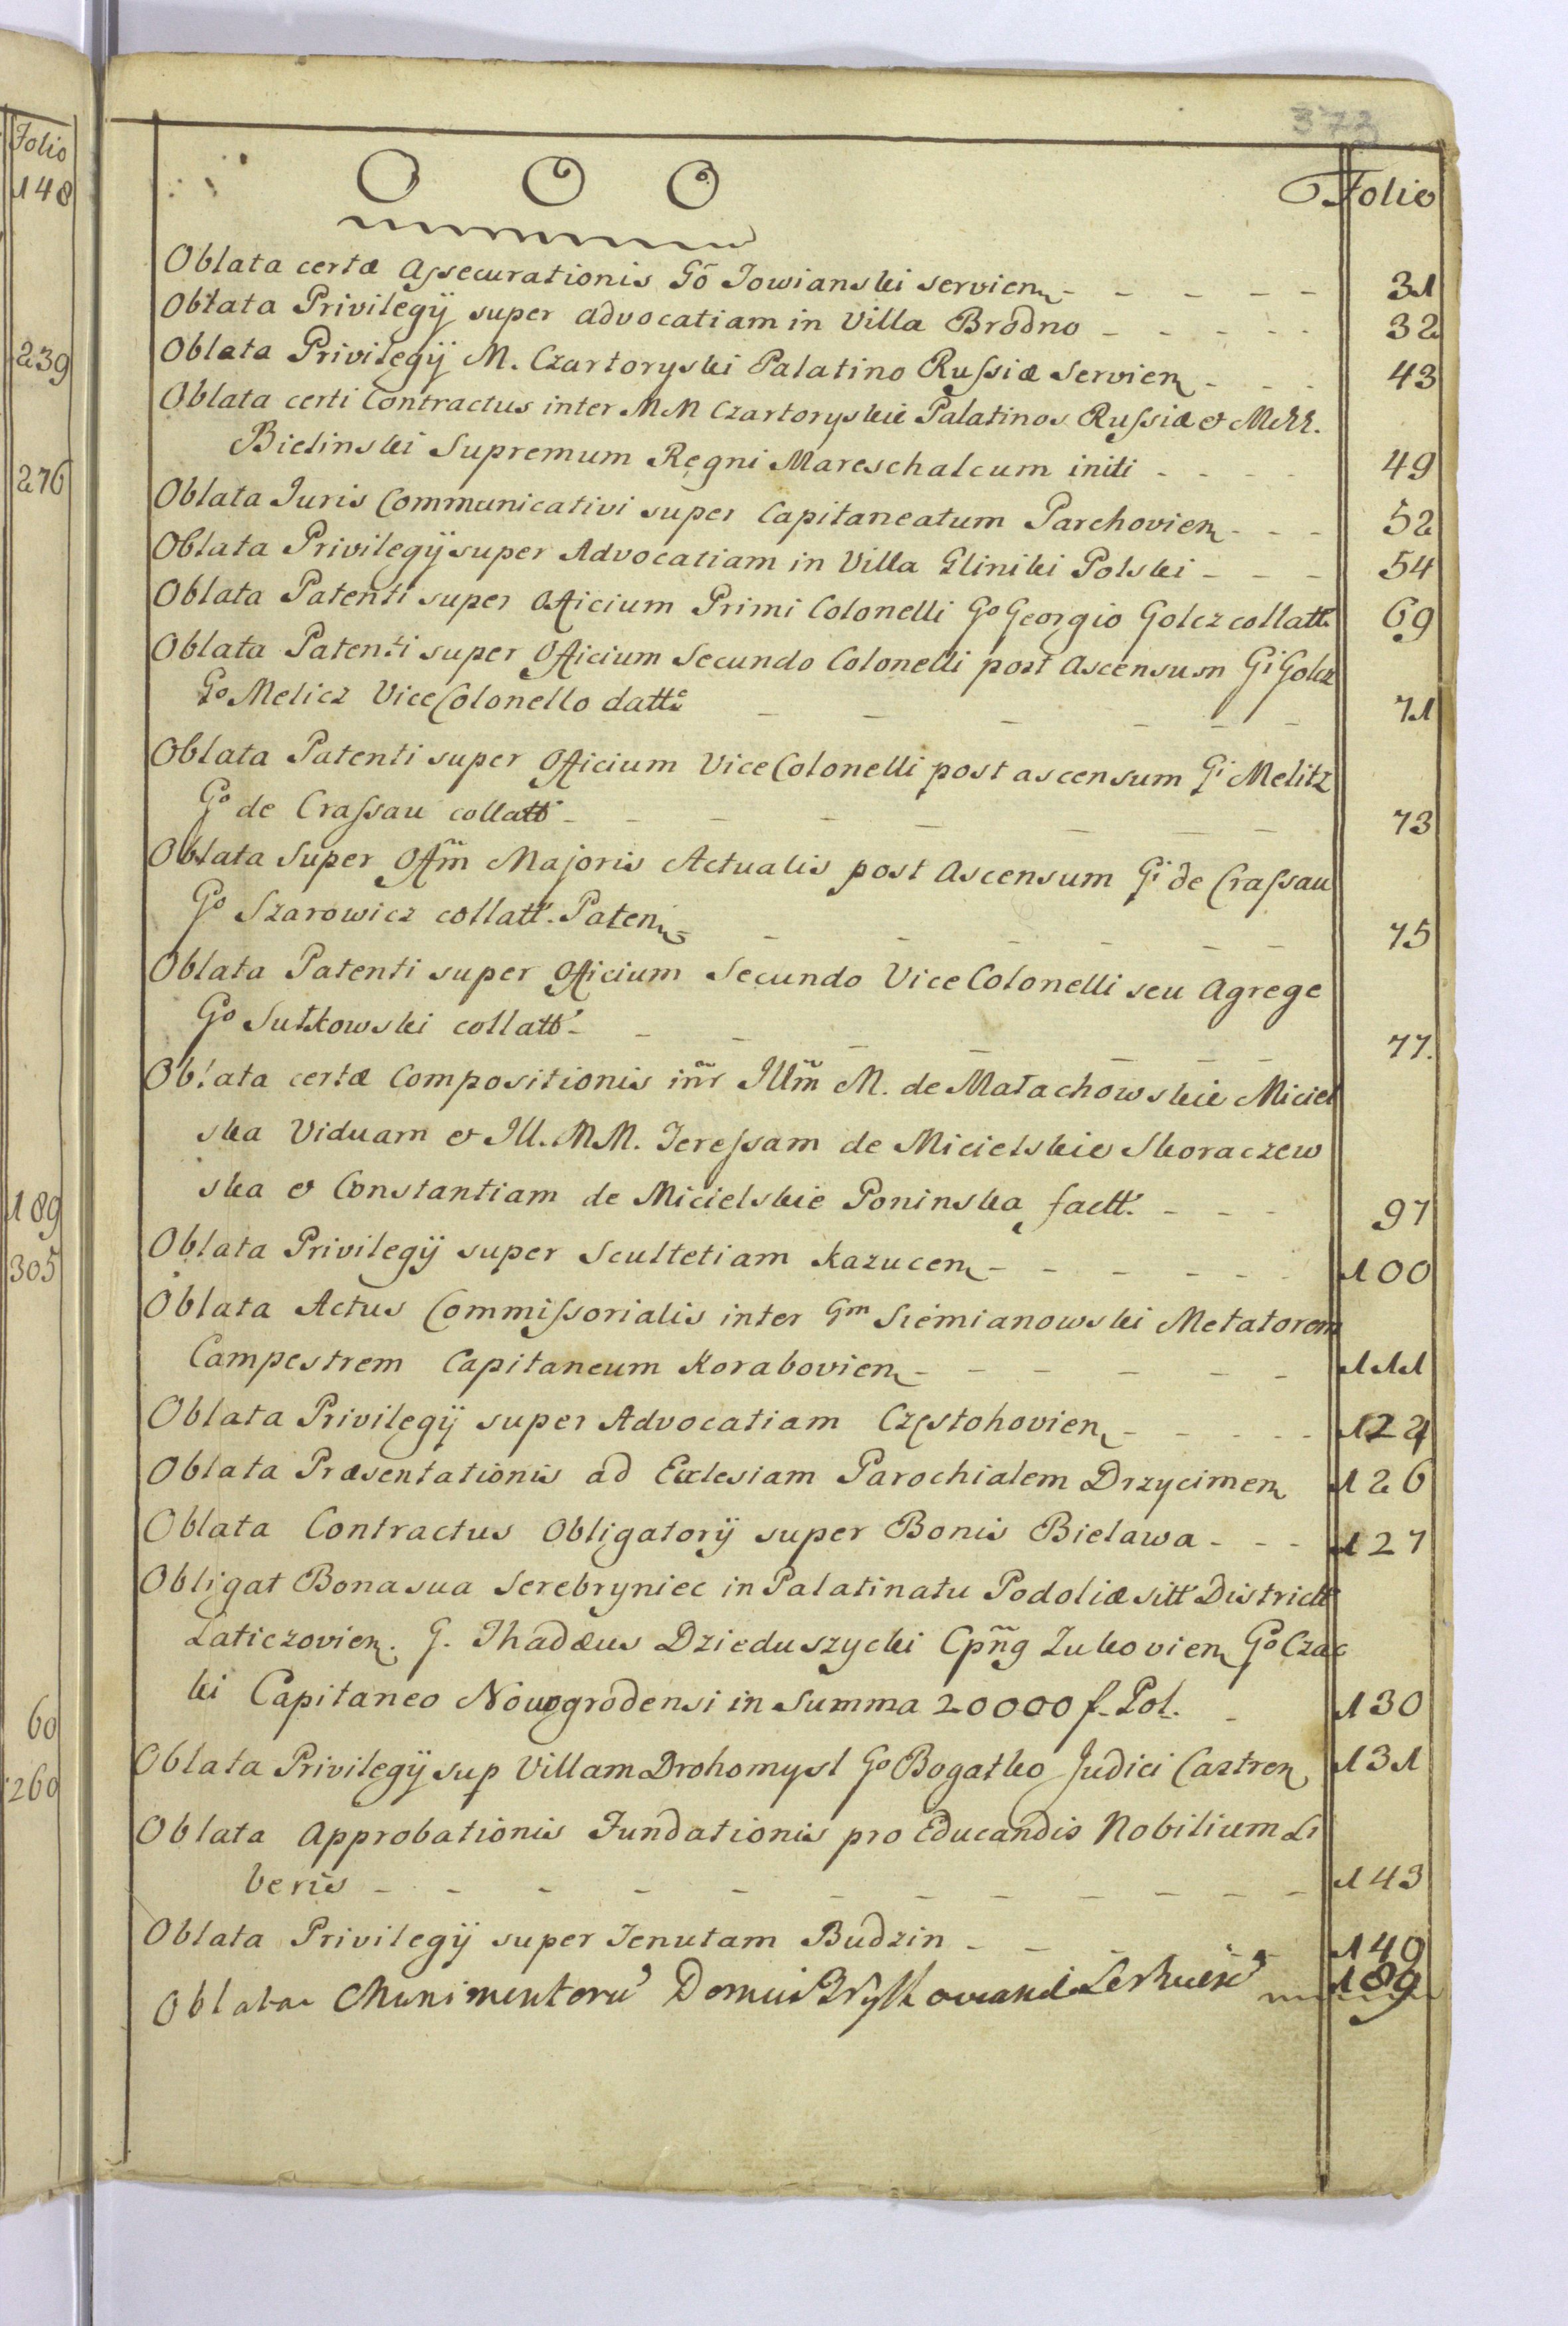 Folio
148
239
276
189
305
60
260
373
O O O Folio
Oblata certæ Assecurationis Gõ Jowianski servien 31
Obłata Privilegÿ super advocatiam in Villa Brodno 32
Oblata Privilegÿ M. Czartoryski Palatino Russiæ Servien 43
Oblata certi Contractus inter MM Czartoryskie Palatinos Russiæ et
Bielinski Supremum Regni Mareschalcum initi 49
Oblata Juris Communicativi super Capitaneatum Parchovien 52
Oblata Privilegÿ super Advocatiam in Villa Gliniki Polski 54
Oblata Patenti super Officium Primi Colonelli Go Georgio Golcz collatt. 69
Oblata Patenti super Officium Secundo Colonelli post Ascensum Gi Golcz
Go Melicz Vice Colonello datt. 71
Oblata Patenti super Officium Vice Colonelli post ascensum Gi Melitz
Go de Crassau collatt 73
Oblata Super Offm̃ Majoris Actualis post Ascensum Gi de Crassau
Go Szarowicz collatt. Paten 75
Oblata Patenti super Officium Secundo Vice Colonelli seu Agrege
Go Sułkowski collatt 77.
Oblata certæ Compositionis inr̃ Illm̃ M. de Małachowskie Miciel
ska Viduam et Ill. MM. Teressam de Micielskie Skoraczew
ska et Constantiam de Micielskie Poninska factt. 97
Oblata Privilegÿ super Scultetiam Kazucen 100
Oblata Actus Commissorialis inter Gm Siemianowski Metatorem
Campestrem Capitaneum Korabovien 111
Oblata Privilegÿ super Advocatiam Częstohovien 124
Oblata Præsentationis ad Ecclesiam Parochialem Drzycimen 126
Oblata Contractus Obligatorÿ super Bonis Bielawa 127
Obligat Bona sua Serebryniec in Palatinatu Podoliæ sitt Districtt
Laticzovien. G. Thadæus Dzieduszycki Cpñg Zukovien Go Czac
ki Capitaneo Nowogrodensi in Summa 20000 f. Pol. 130
Oblata Privilegÿ sup Villam Drohomysl Go Bogatko Judici Castren 131
Oblata Approbationis Fundationis pro Educandis Nobilium Li
beris 143
Oblata Privilegÿ super Tenutam Budzin 149
Oblata Munimentoru Domus 189